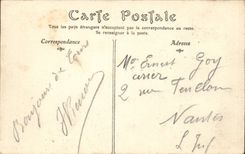 Carte Postale
Tous les pays étrangers n'acceptent pas la correspondance au recto.
Se renseigner à la poste.
Correspondance
Adresse
Bonjour de
Mr Ernest Goy
2 rue Fénelon
Nantes
L. Inf